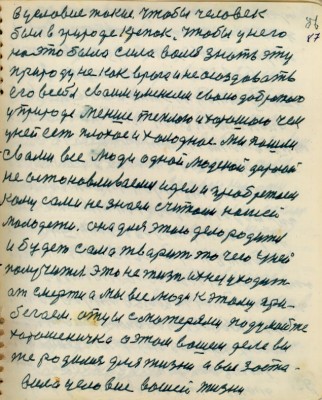 86
87
в условие такие чтобы человек
был в природе крепок. чтобы у него
на это было сила воля знать эту
природу не как врага и не создовать
его в себя своим умением свою доброту
у природе меньше теплого и хорошого чем
у ней есть плохое и холодное. мы пошли
с вами все люди одной людской дорогой
не останавливаемся идем и приобретаем
кому сами не знаем считаем нашей
молодежи. она для этого дела родится
и будет сама творит то чего у ней
получится. это не жизнь их не уходит
от смерти а мы все люди к этому при-
бегаем. отцы с матерями подумайте
хорошеничко о этом вашем деле вы
же родились для жизни а вас заста-
вило условие вашей жизни